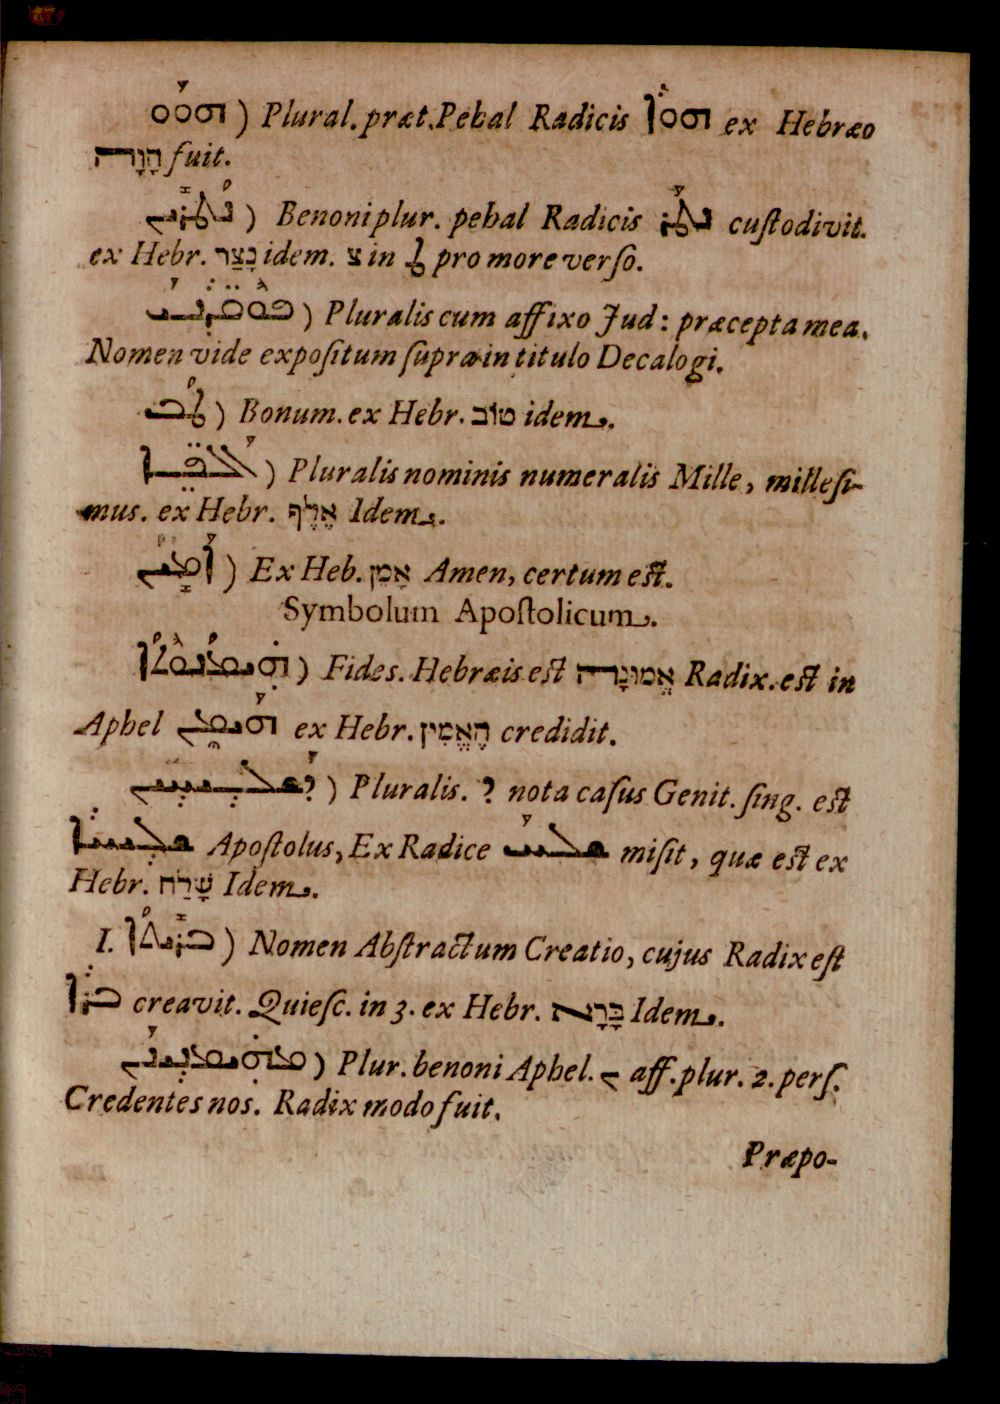 ܗܘܘ ) Plural. præt. Pehal Radicis ܗܘܐ ex Hebræo
הָוָה fuit.
ܢܛܪܝ ) Benoni plur. pehal Radicis ܢܛܪ cuſtodivit.
ex Hebr. נָצַר idem. צ in ܛ pro more verſo.
ܦܘܩܕܢܝ ) Pluralis cum affixo Jud: præcepta mea.
Nomen vide expoſitum ſupra in titulo Decalogi.
ܛܒ ) Bonum. ex Hebr. טוֹב idem.
ܐܠܦܐ ) Pluralis nominis numeralis Mille, milleſi-
mus. ex Hebr. אֶלֶף Idem.
ܐܡܝܢ ) Ex Heb. אָמֵן Amen, certum eſt.
Symbolum Apoſtolicum.
ܗܝܡܢܘܬܐ ) Fides. Hebræis eſt אֱמוּנָה Radix. eſt in
Aphel ܗܝܡܢ ex Hebr. הֶאֱמִין credidit.
ܕܫܠܝܚܝܢ ) Pluralis. ܕ nota caſus Genit. ſing. eſt
ܫܠܝܚܐ Apoſtolus, Ex Radice ܫܠܚ miſit, quæ eſt ex
Hebr. שָׁלַח Idem.
I. ܒܪܝܬܐ ) Nomen Abſtractum Creatio, cujus Radix eſt
ܒܪܐ creavit. Quieſc. in 3. ex Hebr. בָּרָא Idem.
ܡܗܝܡܢܝܢܢ ) Plur. benoni Aphel. ܢ aff. plur. 2. perſ.
Credentes nos. Radix modo fuit.
Præpo-